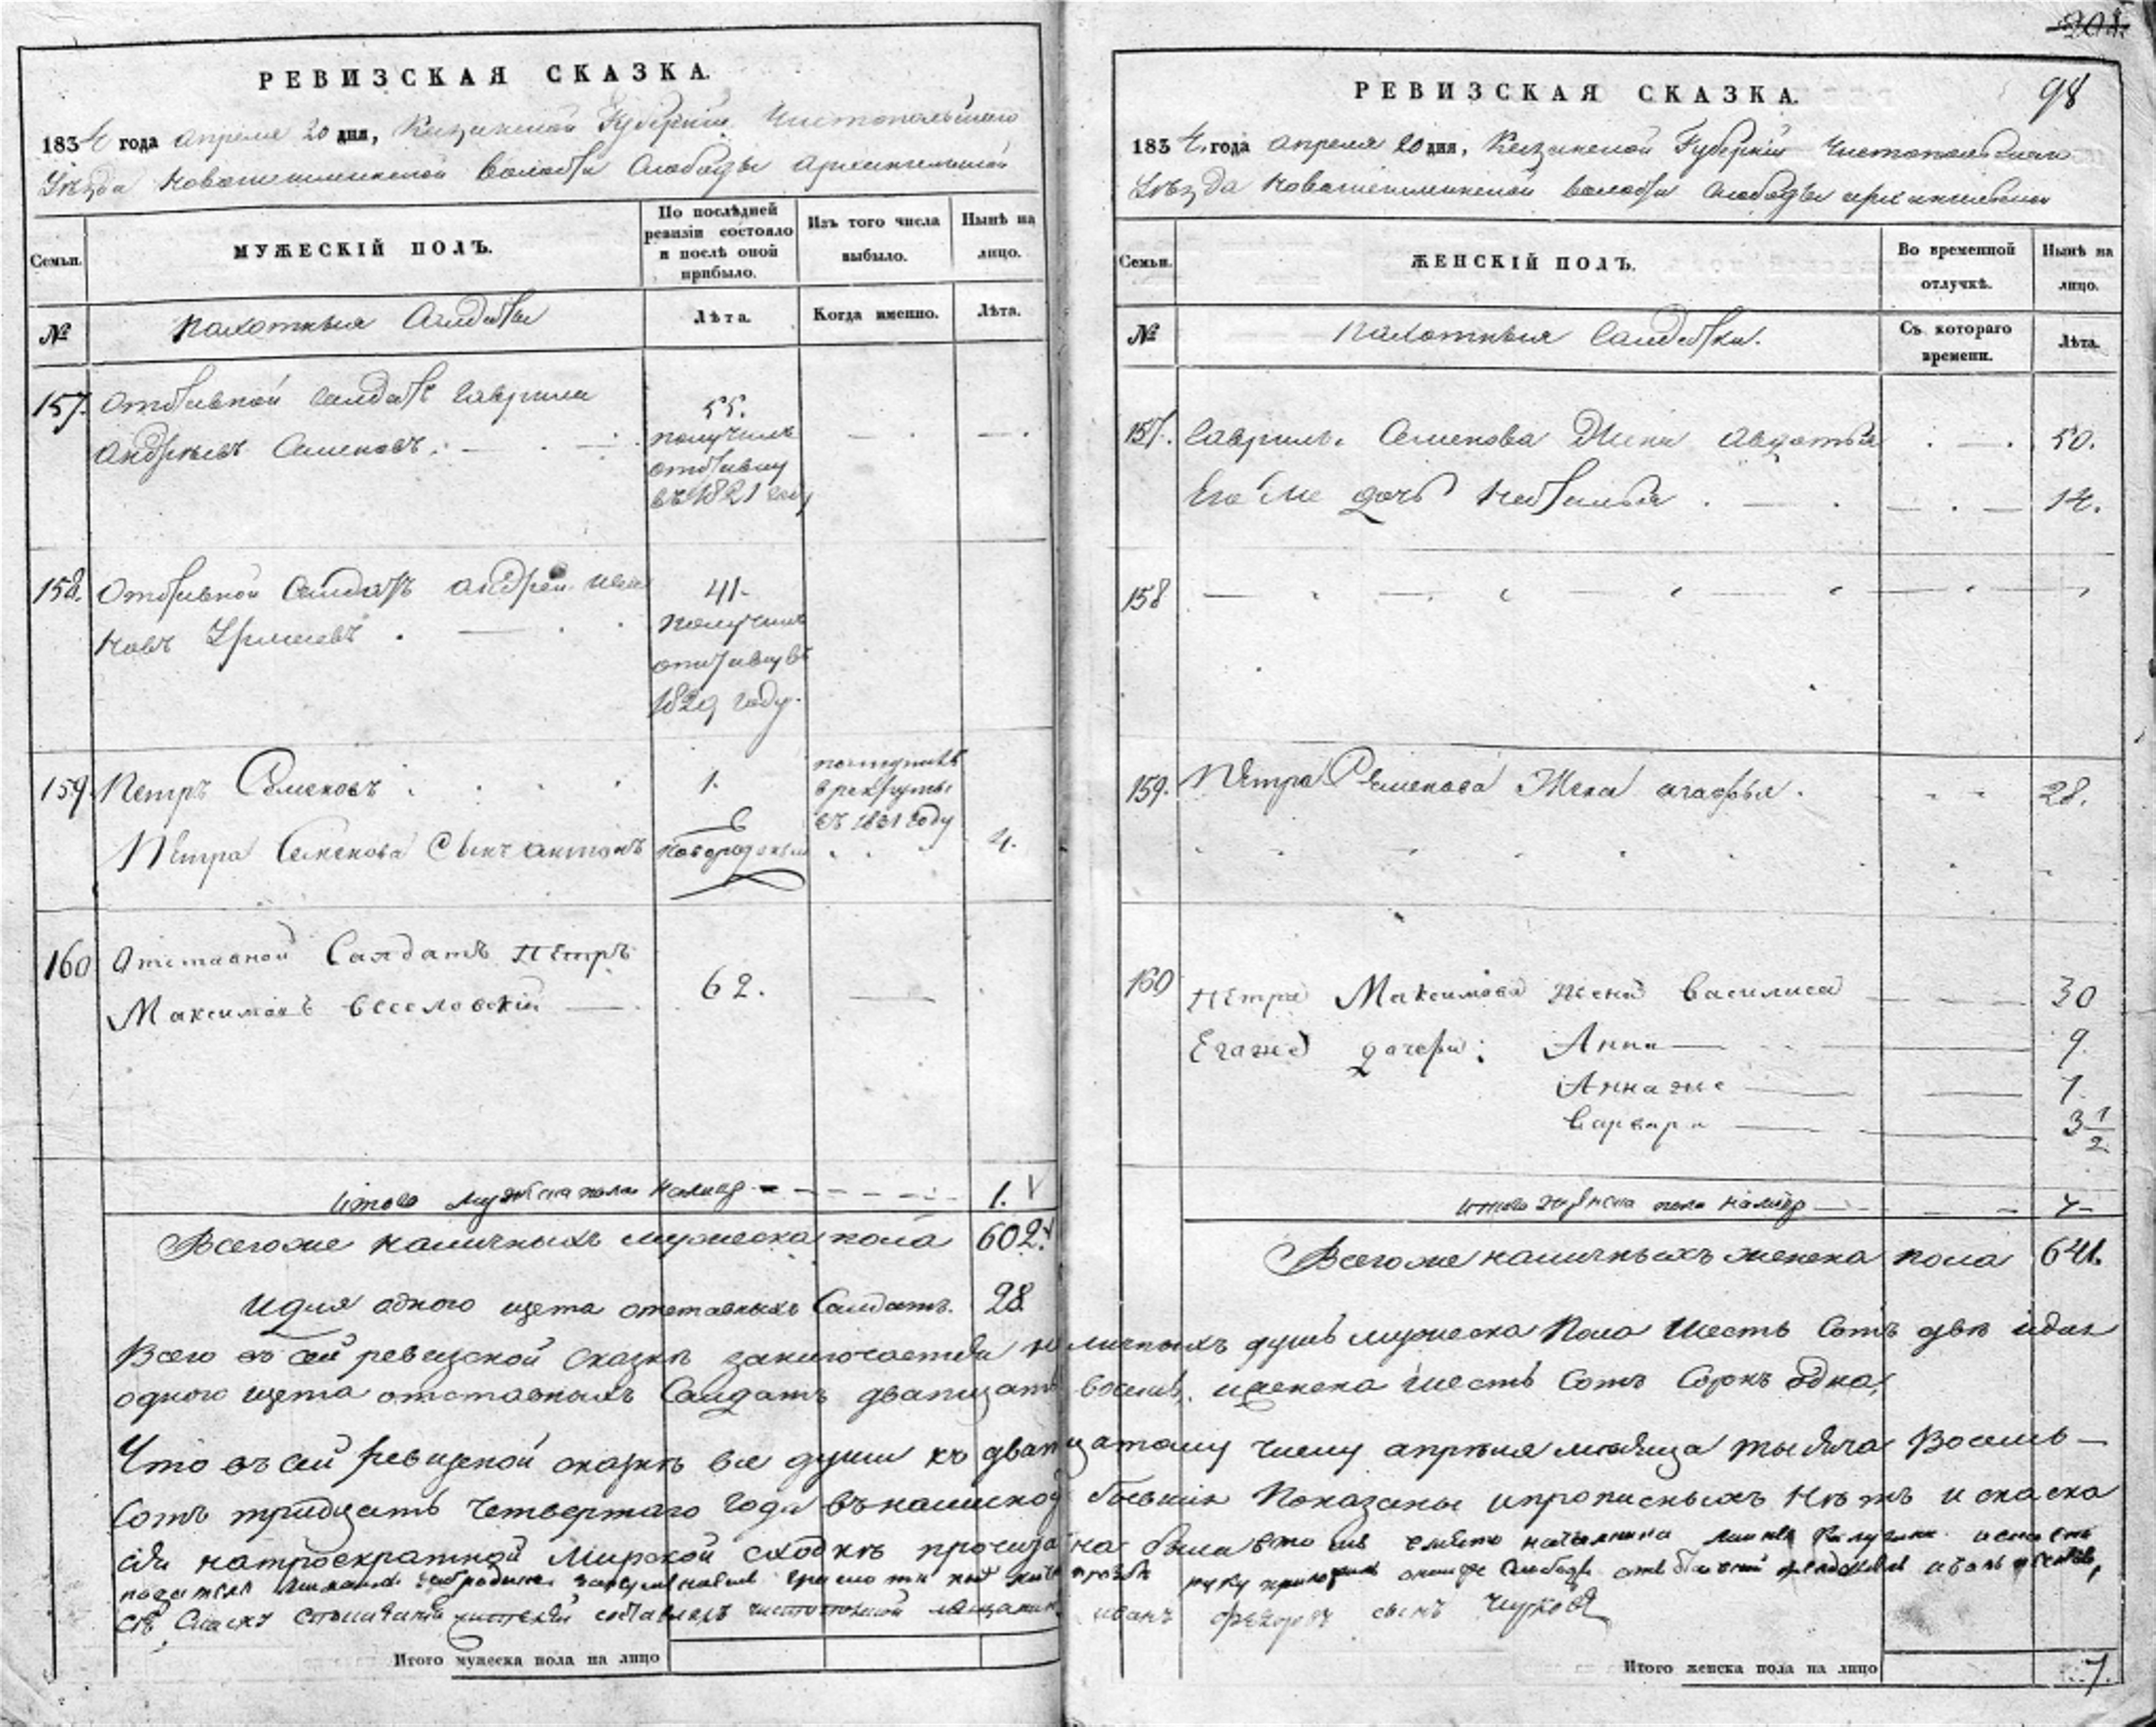 РЕВИЗСКАЯ СКАЗКА.
1834 года апреля 20 дня, Казанской Губернiи Чистопольскаго
Уѣзда Новошешминской волости Слободы Архангельской
Семьи.
МУЖЕСКIЙ ПОЛЪ.
По послѣдней ревизiи состояло и послѣ оной прибыло.
Изъ того числа выбыло.
Нынѣ на лицо.
№
Пахотныя Салдаты
Лѣта.
Когда именно.
Лѣта.
157. Отставной салдатъ Гаврила 55.
Андреевъ Семеновъ. получилъ
отставку
въ 1821 году
158. Отставной Салдатъ Андрей 41.
новъ получилъ
отставку въ
1829 году.
159 Петръ Семеновъ 1. поступилъ
в рекруты
въ 1831 году
Петра Семенова Сынъ Антонъ новорожденный 4.
160 Отставной Салдатъ Петръ
Максимовъ Веселовскiй 62.
Итого мужеска пола налицо 1.
Всегоже наличныхъ мужеска пола 602.
Идля одного щета отставныхъ Салдатъ. 28.
РЕВИЗСКАЯ СКАЗКА.
98
1834 года апреля 20 дня, Казанской Губернiи Чистопольскаго
Уѣзда Новошешминской волости Слободы Архангельской
Семьи.
ЖЕНСКIЙ ПОЛЪ.
Во временной отлучкѣ.
Нынѣ на лицо.
№
Пахотныя Салдатки.
Съ котораго времени.
Лѣта.
157. Гаврилы Семенова Жена Авдотья 50.
Его же дочь Наталья 14.
158
159. Петра Семенова Жена агафья. 28.
160 Петра Максимова жена Василиса 30
Егоже дочери: Анна 9
Анна же 7.
Варвара 3 1/2
Итого женска пола налицо 7
Всегоже наличныхъ женска пола 641.
Всего въ сей ревизской сказкѣ заключается наличныхъ душъ мужеска пола шесть Сотъ двѣ идля
одного щета отставныхъ Салдатъ дватцать восемь. иженска шесть Сотъ Сорокъ одна,
Что въ сей ревизской сказкѣ все души къ дватцатому числу апрѣля мѣсяца тысяча Восемь
Сотъ тридцать четвертаго года въ наличной бывшiя показаны ипрописныхъ нѣтъ и скаска
сiя на троекратной Мирской сходкѣ прочитана была
иванъ Федоровъ сынъ Чурковъ
Итого мужеска пола на лицо
Итого женска пола на лицо 7.